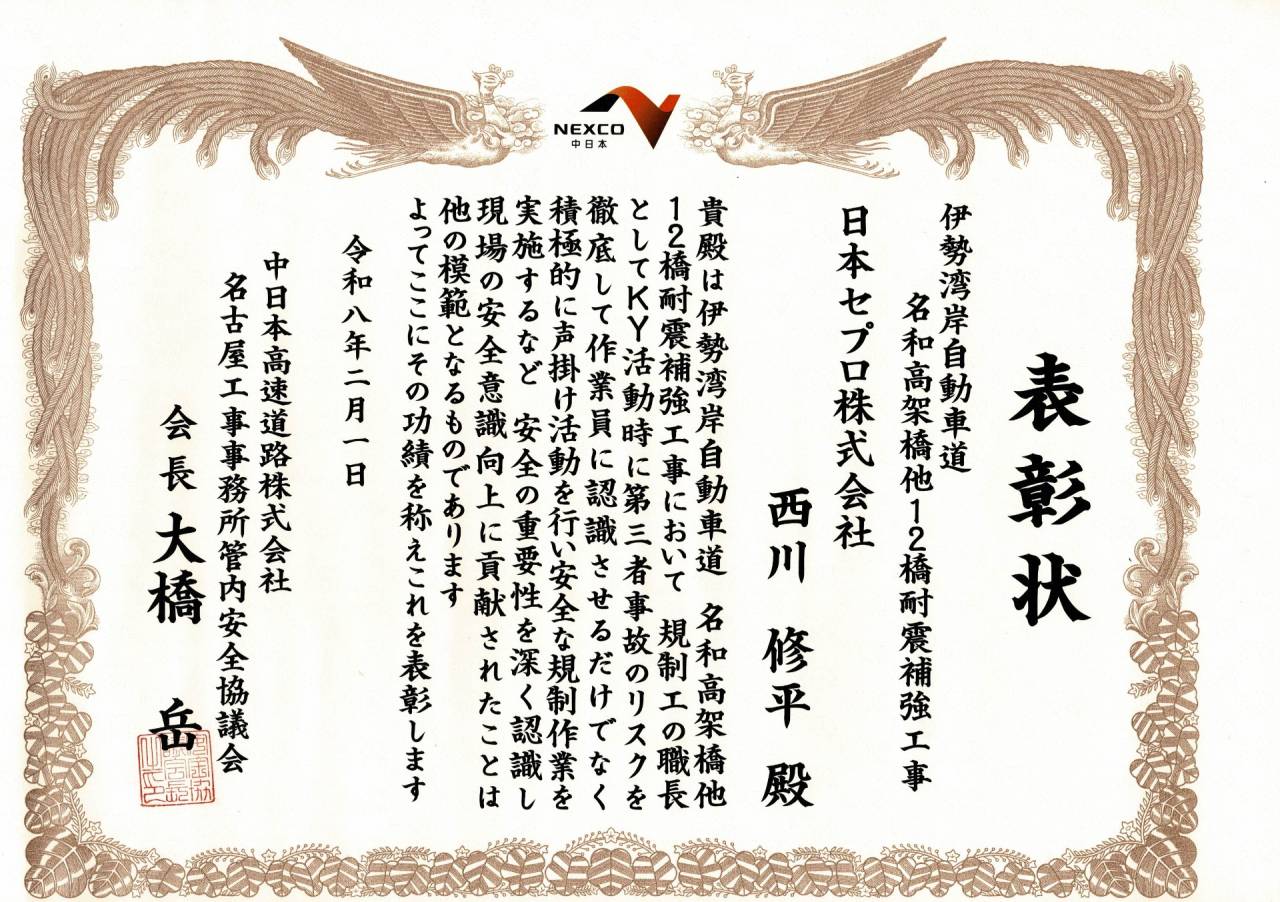 NEXCO
中日本
表彰状
伊勢湾岸自動車道
名和高架橋他12橋耐震補強工事
日本セプロ株式会社
西川 修平 殿
貴殿は伊勢湾岸自動車道 名和高架橋他
12橋耐震補強工事において 規制工の職長
としてKY活動時に第三者事故のリスクを
徹底して作業員に認識させるだけでなく
積極的に声掛け活動を行い安全な規制作業を
実施するなど 安全の重要性を深く認識し
現場の安全意識向上に貢献されたことは
他の模範となるものであります
よってここにその功績を称えこれを表彰します
令和八年二月一日
中日本高速道路株式会社
名古屋工事事務所管内安全協議会
会長 大橋 岳